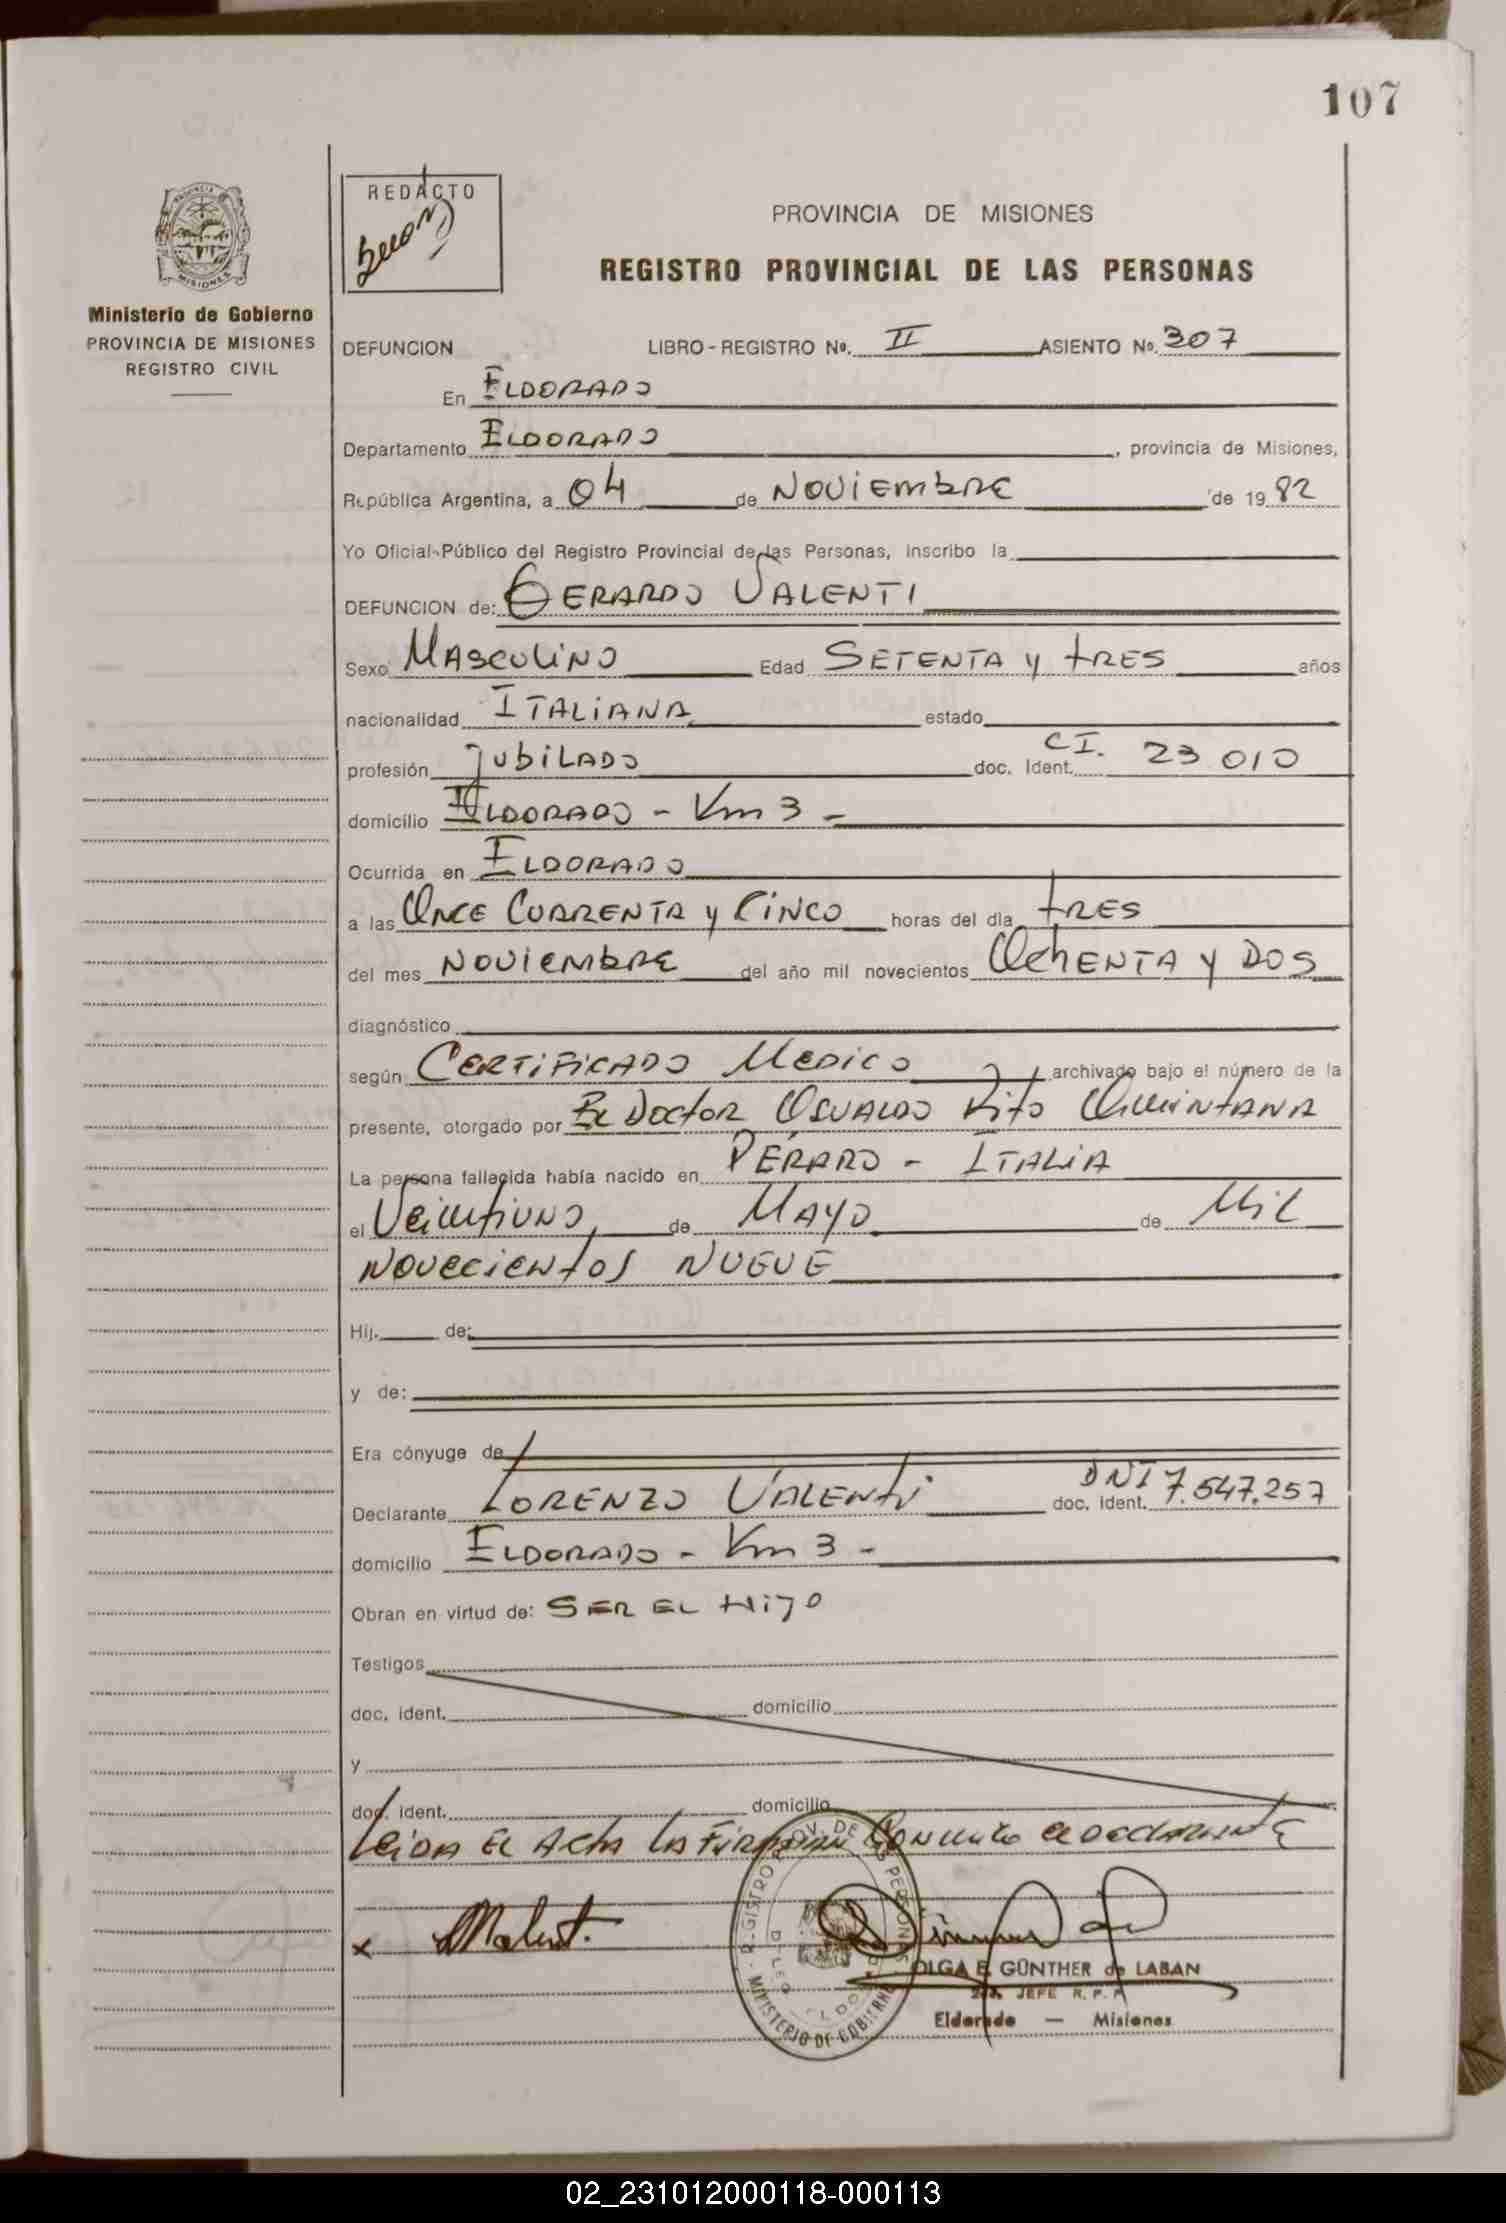 107
REDACTO
PROVINCIA DE MISIONES
REGISTRO PROVINCIAL DE LAS PERSONAS
Ministerio de Gobierno
PROVINCIA DE MISIONES
REGISTRO CIVIL
DEFUNCION LIBRO - REGISTRO Nº. II ASIENTO Nº. 307
En ELDORADO
Departamento ELDORADO, provincia de Misiones,
República Argentina, a 04 de NOVIEMBRE de 19 82
Yo Oficial Público del Registro Provincial de las Personas, inscribo la
DEFUNCION de: GERARDO VALENTI
Sexo MASCULINO Edad SETENTA y TRES años
nacionalidad ITALIANA estado
profesión JUBILADO doc. Ident. CI. 23 010
domicilio ELDORADO - Km 3 -
Ocurrida en ELDORADO
a las ONCE CUARENTA y CINCO horas del día TRES
del mes NOVIEMBRE del año mil novecientos OCHENTA Y DOS
diagnóstico
según CERTIFICADO MEDICO archivado bajo el número de la
presente, otorgado por EL DOCTOR OSVALDO VITO QUINTANA
La persona fallecida había nacido en PERARO - ITALIA
el VEINTIUNO de MAYO de MIL
NOVECIENTOS NUEVE
Hij. de:
y de:
Era cónyuge de
Declarante LORENZO VALENTI doc. ident. DNI 7.547.257
domicilio ELDORADO - Km 3 -
Obran en virtud de: SER EL HIJO
Testigos
doc. ident. domicilio
y
doc. ident. domicilio
LEIDA EL ACTA LA FIRMAN CONMIGO EL DECLARANTE
x
OLGA E. GÜNTHER de LABAN
JEFE R. P. P.
Eldorado — Misiones
02_231012000118-000113